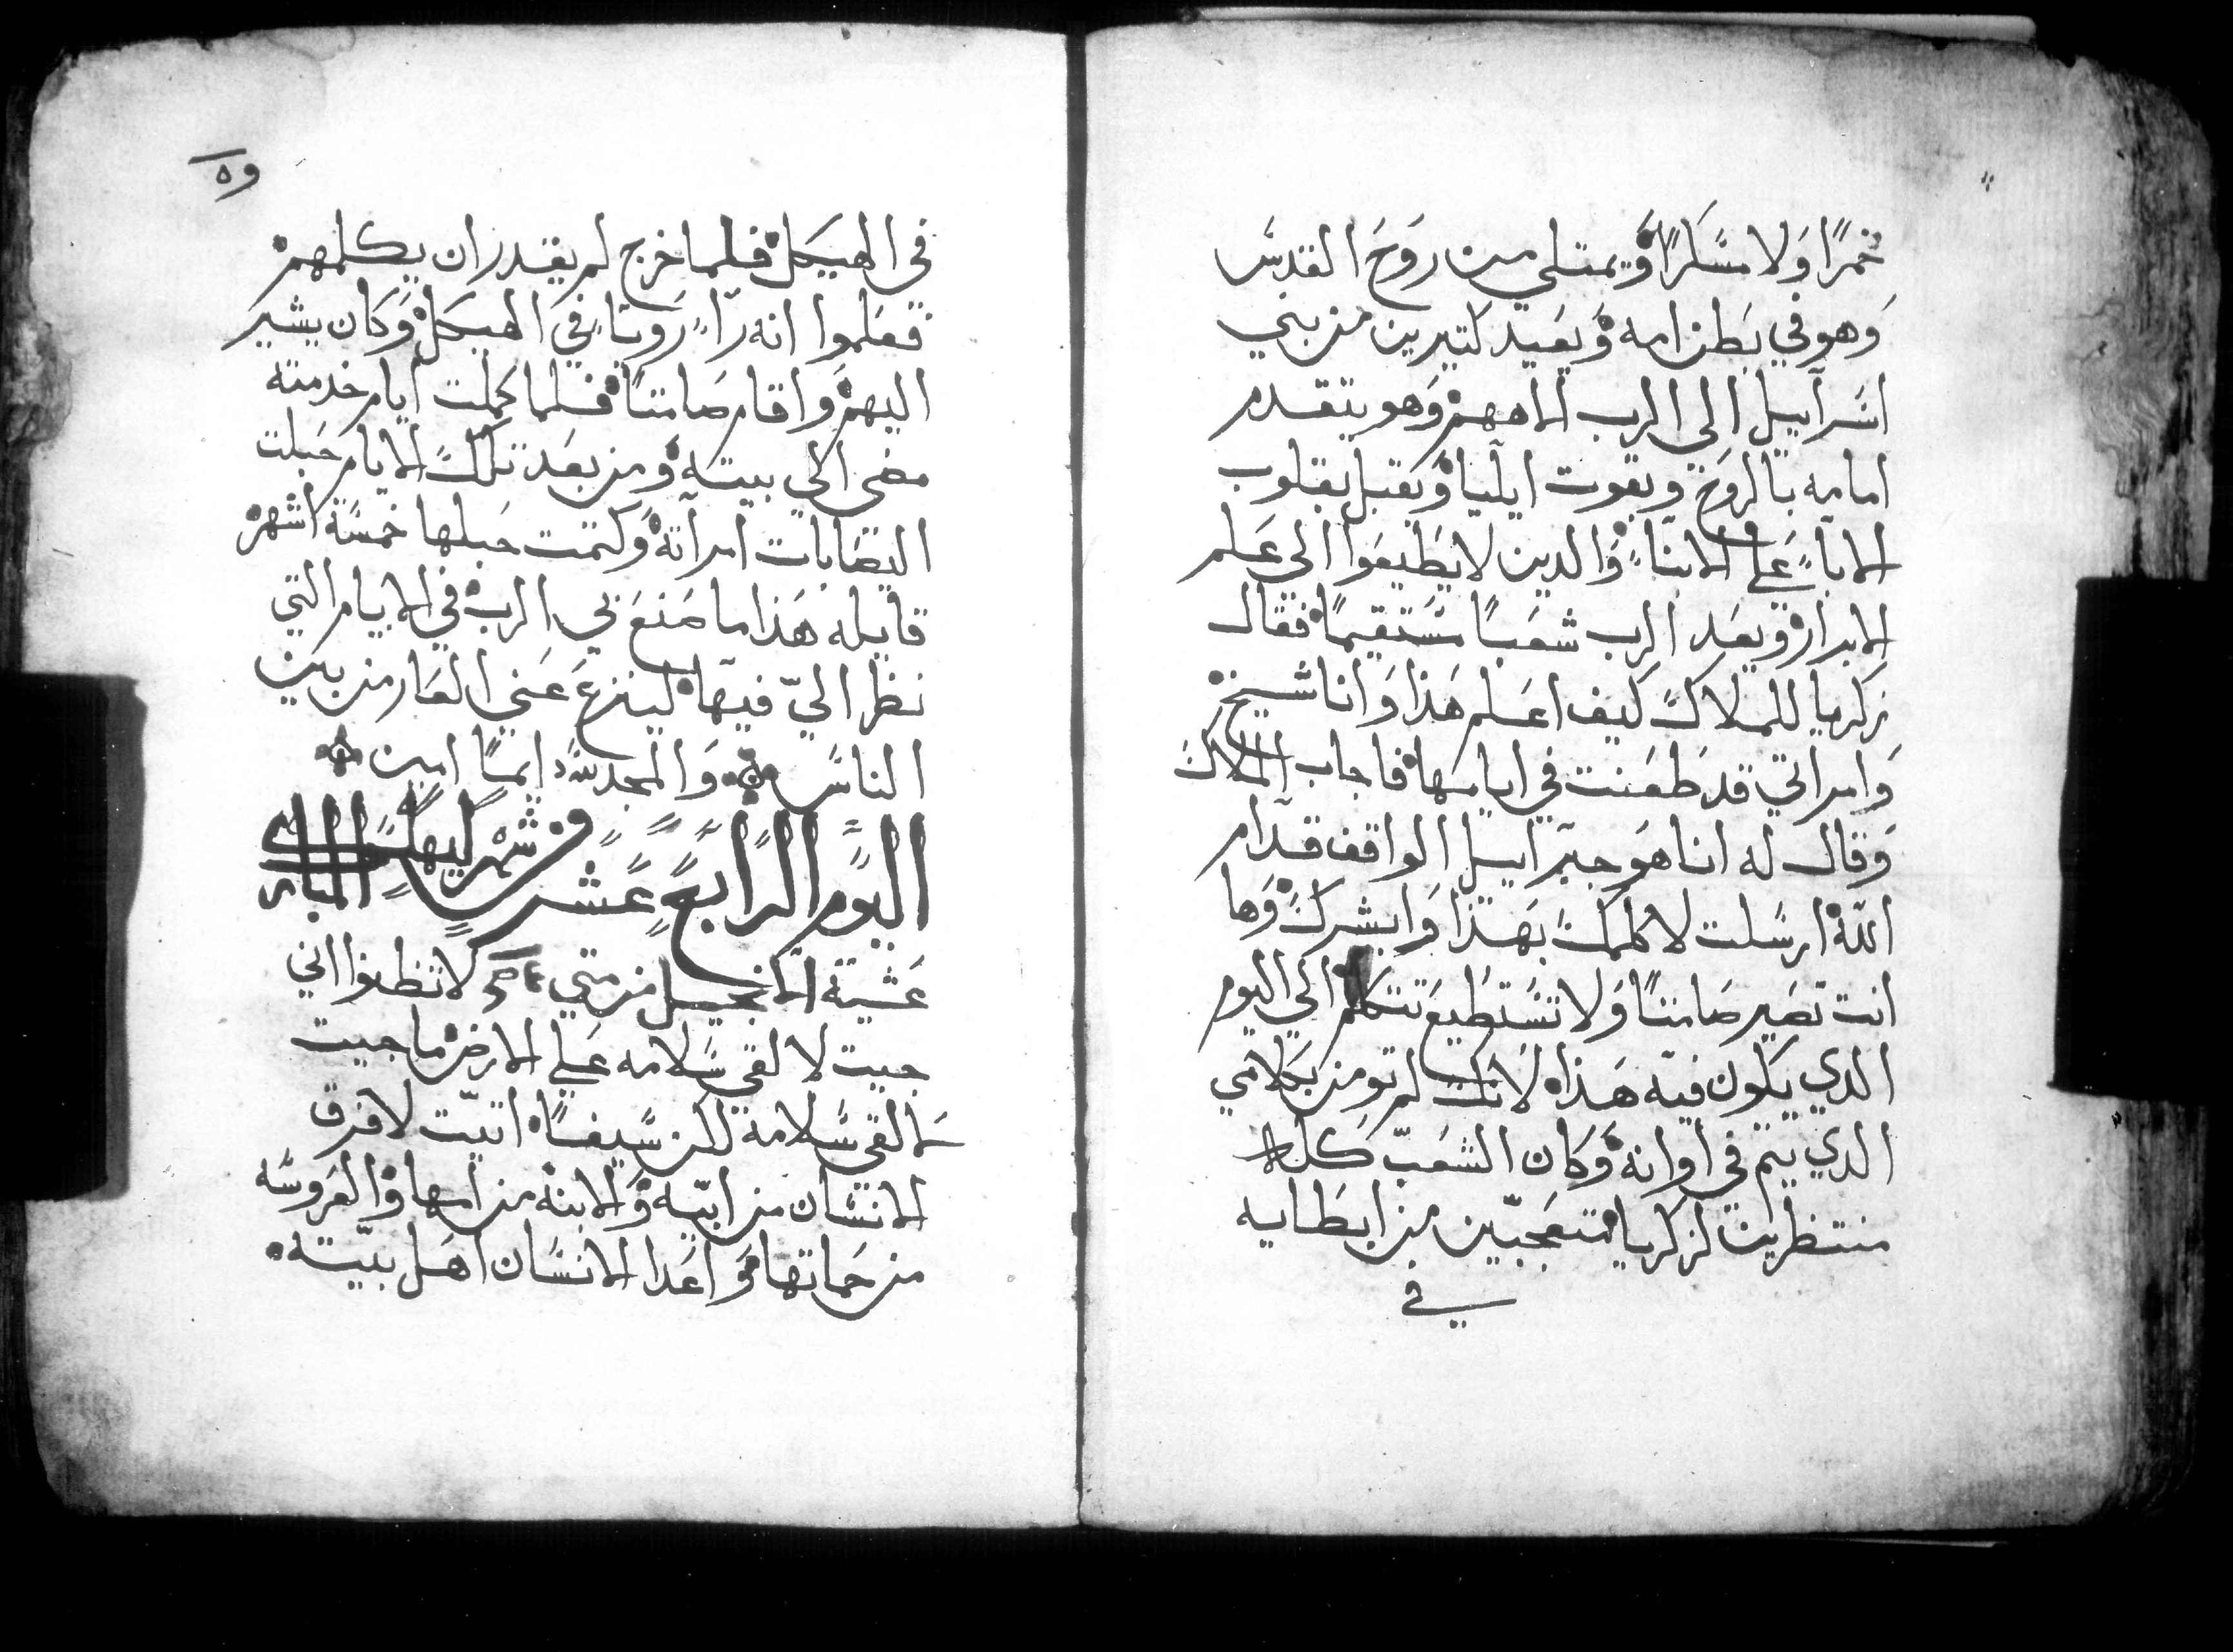 خمرًا وَلا مسَكرًا وَيمتلي من روَحَ القدسَ
وَهو في بَطن امه وَيعَيد كتيرين من بني
اسَرآييل الي الرب الاههم وَهو يتقدم
امامه بالروَح وبقوت ايليا وَيقبل بقلوب
الابآء عَلي الابنآء وَالدين لا يطَيعَوا الي عَلم
الابرار وَيعَد الرب شعَبًا مسَتقيمًا فقال
زكريا للملاك كيف اعَلم هَذا وَانا شيخ
وَامراتي قد طعَنت في ايامهَا فاجاب الملاك
وَقال له انا هَو جبرآييل الواقف قدآم
اللّه ارسَلت لاكلمك بهَذا وَابشرك وَها
انت تصَير صَامتًا وَلا تسَتطيعَ تتكلم الي اليوم
الدي يكون فيه هَذا لانك لم تومن بكلامي
الدي يتم في اوانه وَكان الشعَب كله
منتظرين لزكريا متعَجبين من ابطَايه
في
وه
في الهيكل فلما خرج لم يقدر ان يكلمهم
فعَلموا انه رآء رَويا في الهيكل وَكان يشير
اليهم وَاقام صَامتًا فلما كملت ايام خدمته
مضي الي بيته وَمن بعَد تلك الايام حَبلت
اليصَابات امرآته وَكتمت حبلها خمسَة اشهر
قايله هَذا ما صَنعَ بي الرب في الايام التي
نظر اليّ فيها لينزعَ عَني العَار من بين
الناسَ وَالمجد للّه دايمًا امين
اليوم الرابعَ عَشر من شهر كيهك المبارك
عَشية الانجيل من متي لا تظنوا اني
جيت لالقي سَلامه عَلي الارض ما جيت
لالقي سَلامة لكن سَيفًا اتيت لافرق
الانسَان من ابيه وَالابنه من امها وَالعَروسَه
من حَماتها وَاعَدا الانسَان اهَل بيته